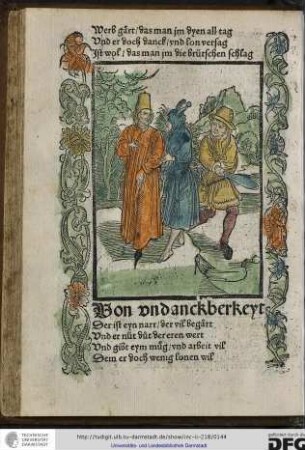 Werb gärt / das man jm dyen all tag
Vnd er doch danck / vnd lon versag
Ist wol: das man jm die brütschen schlag
Von vndanckberkeyt
Der ist eyn narr / der vil begärt
Vnd er nüt düt der eren wert
Vnd gibt eym müg / vnd arbeit vil
Dem er doch wenig lonen wil
TECHNISCHE
UNIVERSITÄT
DARMSTADT
http://tudigit.ulb.tu-darmstadt.de/show/inc-ii-218/0144
Universitäts- und Landesbibliothek Darmstadt
gefördert durch die
DFG